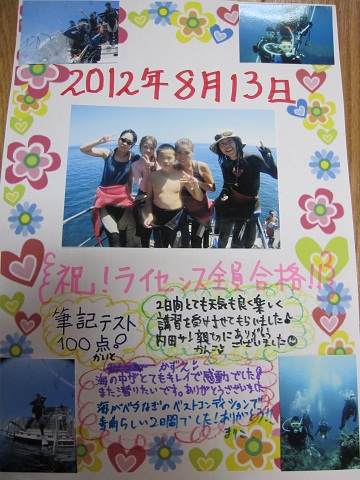 2012年8月13日
祝！ライセンス全員合格!!
筆記テスト
100点!
かいと
2日間とても天気も良く楽しく
講習を受けさせてもらいました♪
内田サン親切にありがとう
ございました
かずえ
海の中がとてもキレイで感動でした!
また潜りたいです。ありがとうございました
海がベタなぎのベストコンディションで
素晴らしい2日間でした!ありがとう!
まりこ